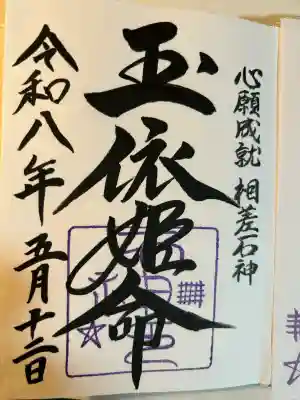 心願成就 相差石神
玉依姫命
令和八年 五月十二日